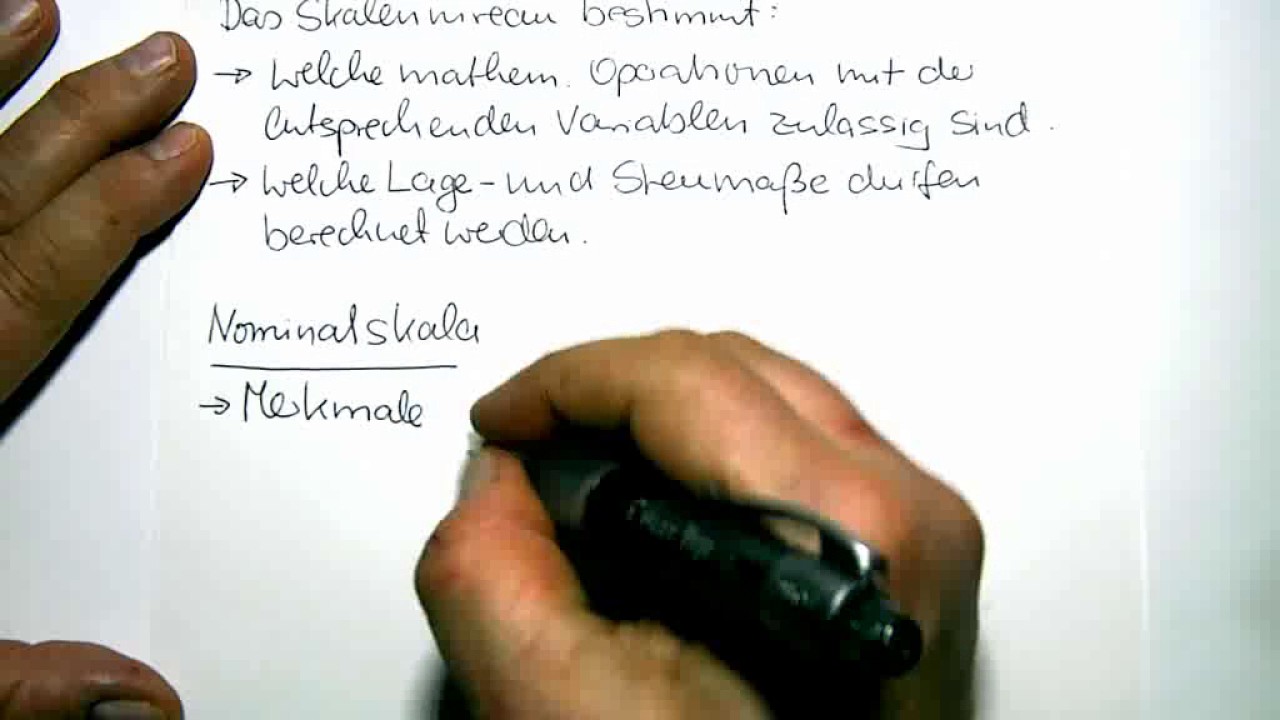 Das Skalenniveau bestimmt:
→ welche mathem. Operationen mit de
entsprechenden Variablen zulässig sind.
→ welche Lage- und Streumaße dürfen
berechnet werden.
Nominalskala
→ Merkmale